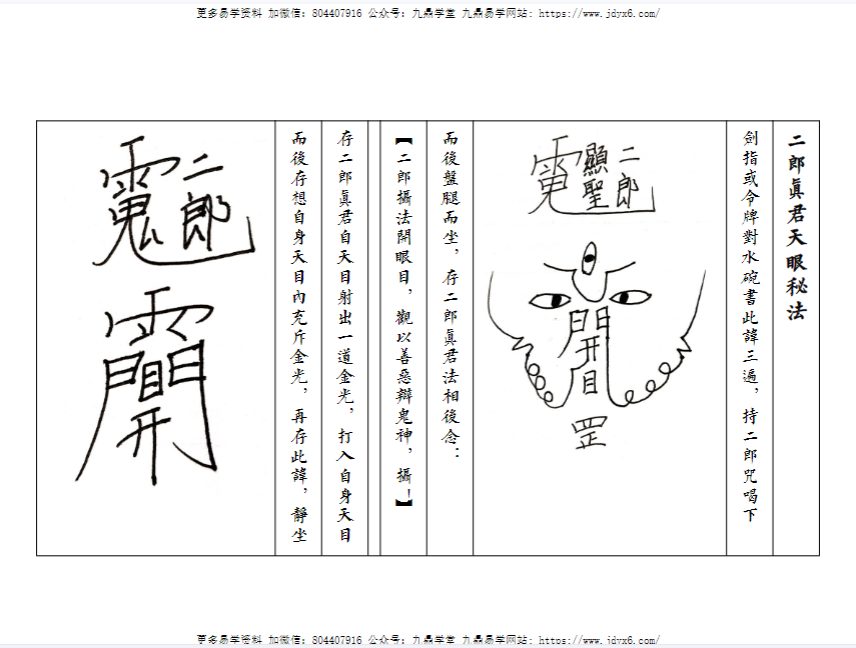 更多易学资料 加微信：804407916 公众号：九鼎学堂 九鼎易学网站：https://www.jdyx6.com/
二郎眞君天眼秘法
劍指或令牌對水碗書此諱三遍，持二郎咒喝下
二郎
顯聖
開目
罡
而後盤腿而坐，存二郎眞君法相後念：
【二郎攝法開眼目，觀以善惡辯鬼神，攝！】
存二郎眞君自天目射出一道金光，打入自身天目
而後存想自身天目內充斥金光，再存此諱，靜坐
二郎
更多易学资料 加微信：804407916 公众号：九鼎学堂 九鼎易学网站：https://www.jdyx6.com/